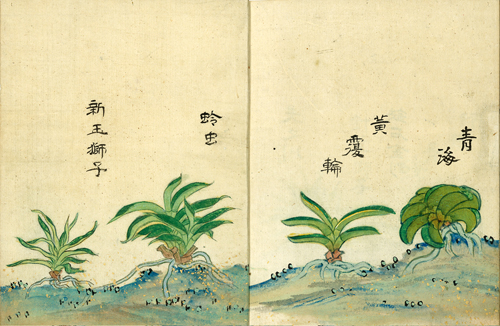 青海
黄覆輪
蛉虫
新玉獅子